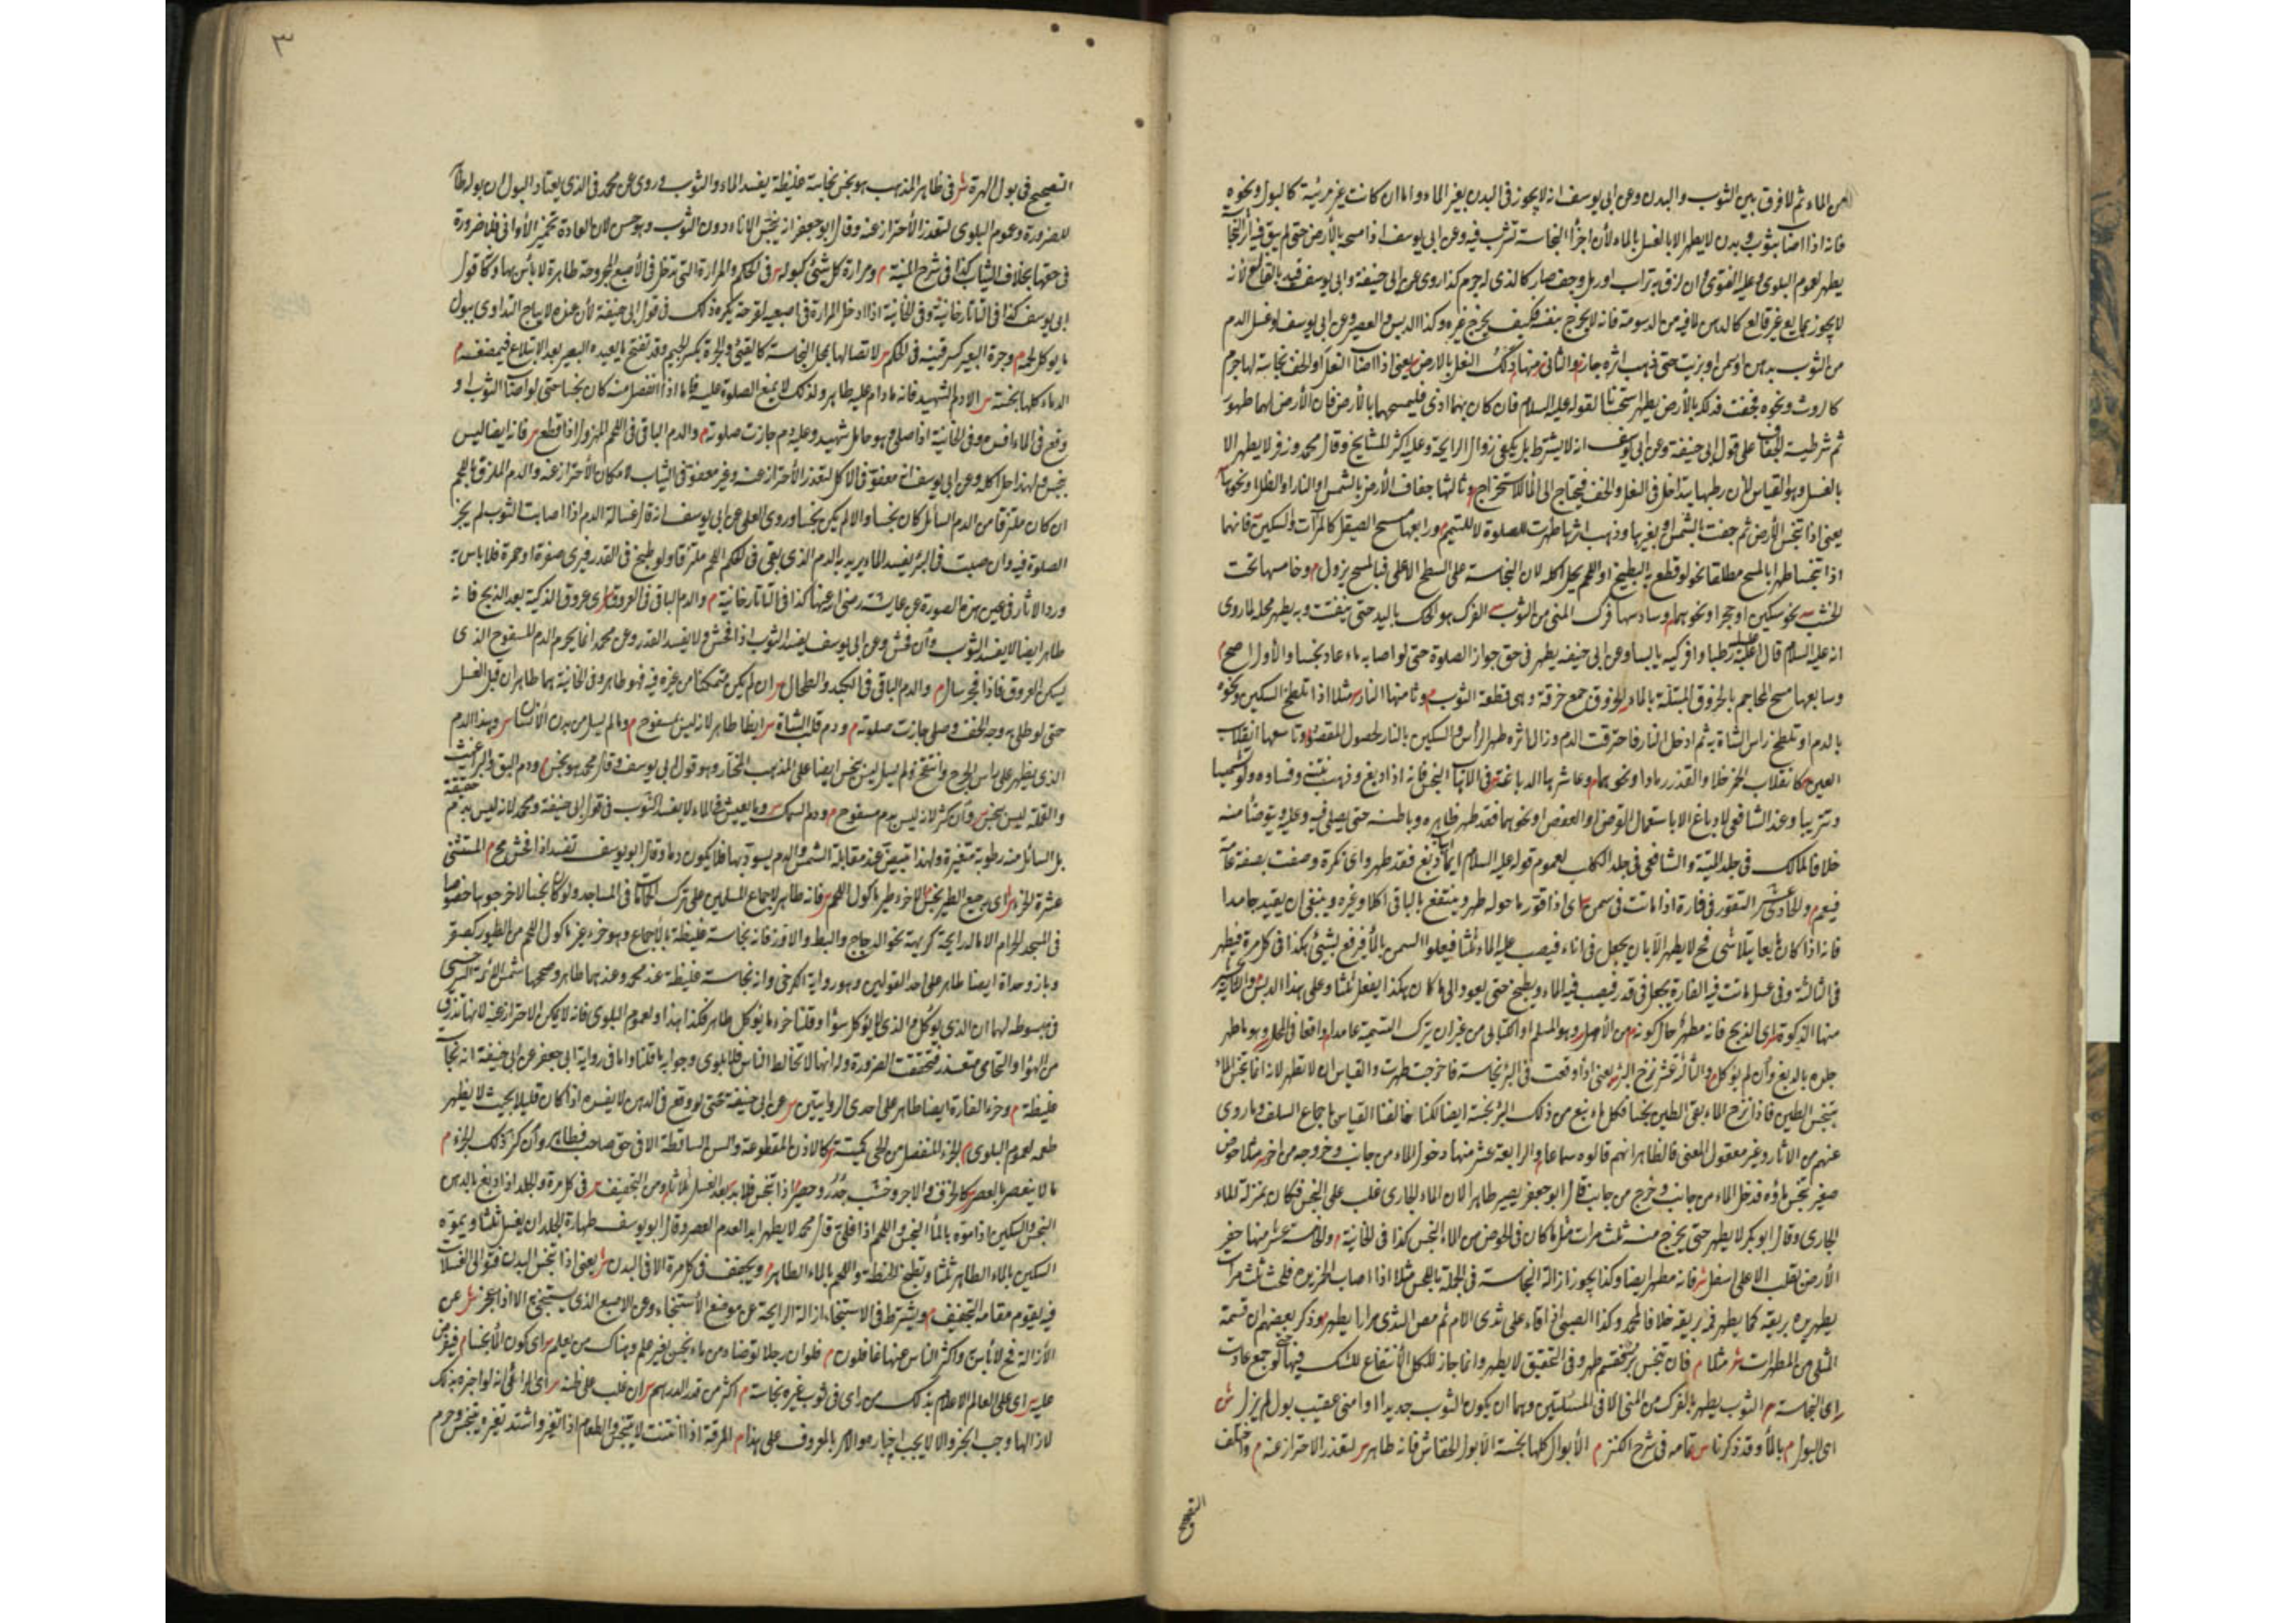 من الماء ثم لا فرق بين الثوب والبدن وعن ابى يوسف انه لا يجوز فى البدن بغير الماء واما ان كانت غير مرئية كالبول ونحوه
فانه اذا اصاب ثوب وبدن لا يطهر الا بالغسل بالماء لأن اجزأ النجاسة تتشرب فيه وعن ابى يوسف اذا مسحه بالأرض حتى لم يبق فيه أثر النجا
يطهر لعموم البلوى وعليه الفتوى وان لزق به تراب او رمل وجف صار كالذى له جرم كذا روى عن ابى حنيفة وابى يوسف قيد بالقالع لأنه
لا يجوز بمايع غير قالع كالدهن لما فيه من الدسومة فانه لا يخرج بنفسه فكيف يخرج غيره وكذا الدبس والعصير وعن ابى يوسف لو غسل الدم
من الثوب بدهن او سمن او بزيت حتى ذهب اثره جاز والثانى منها دلك النعل بالارض يعنى اذا اصاب النعل او الخف نجاسة لها جرم
كالروث ونحوه فجفت فدلكه بالأرض يطهر استحسانا لقوله عليه السلام فان كان بهما اذى فليمسحهما بالأرض فان الأرض لهما طهور
ثم شرطية الجفاف على قول ابى حنيفة وعن ابى يوسف انه لا يشترط بل يكفى زوال الرايحة وعليه اكثر المشايخ وقال محمد وزفر لا يطهر الا
بالغسل وهو القياس لأن رطبها يتداخل فى النعل والخف فيحتاج الى الماء للاستخراج وثالثها جفاف الأرض بالشمس او النار او الظل او نحوها
يعنى اذا تنجس الأرض ثم جفت بالشمس او بغيرها وذهب اثرها طهرت للصلوة لا للتيمم ورابعها مسح الصيقل كالمرآت والسكين فانهما
اذا تنجسا طهرا بالمسح مطلقا نحو لو قطع به البطيخ او اللحم يحل اكله لان النجاسة على السطح الاعلى فبالمسح يزول وخامسها نحت
الخشب نحو سكين او حجر او نحوهما وسادسها فرك المنى من الثوب الفرك هو الحك باليد حتى يتفتت وبه يطهر محله لما روى
انه عليه السلام قال اغسليه رطبا وافركيه يابسا وعن ابى حنيفة يطهر فى حق جواز الصلوة حتى لو اصابه ماء عاد نجسا والأول اصح
وسابعها مسح المحاجم بالخروق المبتلة بالماء الخروق جمع خرقة وهى قطعة الثوب وثامنها النار مثلا اذا تلطخ السكين ونحوه
بالدم او تلطخ راس الشاة به ثم ادخل النار فاحترقت الدم وزال اثره طهر الرأس والسكين بالنار لحصول المقصود وتاسعها انقلاب
العين كانقلاب الخمر خلا والقذر رمادا ونحوهما وعاشرها الدباغة فى الاهاب النجس فانه اذا دبغ وذهب نتنه وفساده ولو تشميسا
وتتريبا وعند الشافعى لا دباغ الا باستعمال القرض او العفص او نحوهما فقد طهر ظاهره وباطنه حتى يصلى فيه وعليه ويتوضأ منه
خلافا لمالك فى جلد الميتة والشافعى فى جلد الكلب لعموم قوله عليه السلام ايما اهاب دبغ فقد طهر واى نكرة وصفت بصفة عامة
فيعم والحادى عشر التقور فى فارة اذا ماتت فى سمن اى اذا قور ما حوله طهر وينتفع بالباقى اكلا وغيره وينبغى ان يقيد جامدا
فانه اذا كان مايعا يتلاشى فح لا يطهر الا بان يجعل فى اناء فيصب عليه الماء ثلثا فيعلوا السمن بالماء فيرفع بشيئ هكذا فى كل مرة فيطهر
فى الثالثة وفى عسل ماتت فيه الفارة يجعل فى قدر فيصب فيه الماء ويطبخ حتى يعود الى ما كان هكذا يفعل ثلثا وعلى هذا الدبس والثانى عشر
منها الذكوة اى الذبح فانه مطهر حال كونه من الأهل وهو المسلم او الكتابى من غير ان يترك التسمية عامدا واقعا فى المحل وهو ما طهر
جلده بالدبغ وان لم يؤكل والثالث عشر نزح البئر يعنى اذا وقعت فى البئر نجاسة فاخرجت طهرت والقياس ان لا تطهر لانه انما تنجس الماء
يتنجس الطين فاذا نزح الماء بقى الطين نجسا فكل ماء ينبع من ذلك البئر نجسة ايضا لكنا خالفنا القياس باجماع السلف وما روى
عنهم من الاثار وغير معقول المعنى فالظاهر انهم قالوه سماعا والرابعة عشر منها دخول الماء من جانب وخروجه من اخر مثلا حوض
صغير تنجس ماؤه فدخل الماء من جانب وخرج من جانب قال ابو جعفر يصير طاهرا لان الماء الجارى غلب على النجس فكان بمنزلة الماء
الجارى وقال ابو بكر لا يطهر حتى يخرج منه ثلث مرات مثل ما كان فى الحوض من الماء النجس كذا فى الخانية والخامسة عشر منها حفر
الأرض بقلب الاعلى اسفل فانه مطهر ايضا وكذا يجوز ازالة النجاسة فى الجملة باللحس مثلا اذا اصاب الخمر يده فلحس ثلث مرات
يطهر يده بريقه كما يطهر فمه بريقه خلافا لمحمد وكذا الصبى اذا قاء على ثدى الام ثم مص الثدى مرارا يطهر وذكر بعضهم ان قسمة
المثلى من المطهرات مثلا فان تنجس بر فقسم طهر وفى التحقيق لا يطهر وانما جاز للكل الانتفاع للشك فيها حتى لو جمع عادت
اى النجاسة الثوب يطهر بالفرك من المنى الا فى المسئلتين وهما ان يكون الثوب جديدا او امنى عقيب بول لم يزل
اى البول بالماء وقد ذكرنا تمامه فى شرح الكنز الأبوال كلها نجسة الا بول الخفاش فانه طاهر لتعذر الاحتراز عنه واختلف
التصحيح
٣
التصحيح فى بول الهرة فى ظاهر المذهب هو نجس نجاسة غليظة يفسد الماء والثوب وروى عن محمد فى الذى يعتاد البول ان بوله طا
للضرورة وعموم البلوى لتعذر الأحتراز عنه وقال ابو جعفر انه ينجس الاناء دون الثوب وهو حسن لان العادة تخمير الأوانى فلا ضرورة
فى حقها بخلاف الثياب كذا فى شرح المنية ومرارة كل شئ كبوله فى الحكم والمرارة التى تدخل فى الأصبع المجروحة طاهرة لا بأس بها وكذا قول
ابى يوسف كذا فى التاتارخانية وفى الخانية اذا ادخل المرارة فى اصبعه لقرحة يكره ذلك فى قول ابى حنيفة لأن عنده لا يباح التداوى ببول
ما يؤكل لحمه وجرة البعير كسرقينه فى الحكم لاتصالها بمحل النجاسة كالقيئ والجرة بكسر الجيم وقد تفتح ما يعيده البعير بعد الابتلاع فيمضغه
الدماء كلها نجسة الا دم الشهيد فانه ما دام عليه طاهر ولذلك لا يمنع الصلوة عليه فاما اذا انفصل منه كان نجسا حتى لو اصاب الثوب او
وقع فى الماء افسده وفى الخانية اذا صلى وهو حامل شهيد وعليه دم جازت صلوته والدم الباقى فى اللحم المهزول اذا قطع فانه ايضا ليس
بنجس ولهذا حل اكله وعن ابى يوسف انه معفو فى الأكل لتعذر الأحتراز عنه وغير معفو فى الثياب لامكان الأحتراز عنه والدم الملزق باللحم
ان كان ملتزقا من الدم السائل كان نجسا والا لم يكن نجسا وروى المعلى عن ابى يوسف انه قال غسالة الدم اذا اصابت الثوب لم يجز
الصلوة فيه وان صبت فى البئر يفسد الماء يريد به الدم الذى بقى فى اللحم ملتزقا ولو طبخ فى القدر فيرى صفرة او حمرة فلا باس به
ورد الاثار فى عين هذه الصورة عن عايشة رضى الله عنها كذا فى التاتارخانية والدم الباقى فى العروق اى عروق الذكية بعد الذبح فانه
طاهر ايضا لا يفسد الثوب وان فحش وعن ابى يوسف يفسد الثوب اذا فحش ولا يفسد القدر وعن محمد انما يحرم الدم المسفوح الذى
يسكن العروق فاذا فجر سال والدم الباقى فى الكبد والطحال ان لم يكن متمكنا من غيره فيه فهو طاهر وفى الخانية هما طاهران قبل الغسل
حتى لو طلى به وجه الخف وصلى جازت صلوته ودم قلب الشاة ايضا طاهر لانه ليس بمسفوح وما لم يسل من بدن الأنسان وبهذا الدم
الذى يظهر على رأس الجرح وانتفخ ولم يسل ليس بنجس ايضا على المذهب المختار وهو قول ابى يوسف وقال محمد هو نجس ودم البق والبراغيث
والقملة ليس بنجس وان كثر لانه ليس بدم مسفوح ودم السمك وما يعيش فى الماء لا يفسد الثوب فى قول ابى حنيفة ومحمد لانه ليس بدم حقيقة
بل السائل منه رطوبة متغيرة ولهذا تبيض عند مقابلة الشمس والدم يسود بها فلا يكون دما وقال ابو يوسف تفسد اذا فحش الخرء المستثنى
عشرة الخرء اى رجيع الطير نجس الا خرء طير ماكول اللحم فانه طاهر لاجماع المسلمين على ترك الحمامات فى المساجد ولو كان نجسا لأخرجوها خصوصا
فى المسجد الحرام الا ماله رايحة كريهة نحو الدجاج والبط والاوز فانه نجاسة غليظة بالأجماع وهو خرء غير ماكول اللحم من الطيور كصقر
وباز وحدأة ايضا طاهر على احد القولين وهو رواية الكرخى وانه نجاسة غليظة عند محمد وعندهما طاهر وصححها شمس الأئمة السرخسى
فى مبسوطه لهما ان الذى يؤكل والذى لا يؤكل سواء وقلنا خرء ما يؤكل طاهر فكذا هذا ولعموم البلوى فانه لا يمكن الاحتراز عنه لانها تذرق
من الهواء والتحامى متعذر فتحققت الضرورة وله انها لا تخالط الناس فلا بلوى وجوابه ما قلنا واما فى رواية ابى جعفر عن ابى حنيفة انه نجا
غليظة وخرء الفارة ايضا طاهر على احدى الروايتين عن ابى حنيفة حتى لو وقع فى الدهن لا يفسده اذا كان قليلا بحيث لا يظهر
طعمه لعموم البلوى الجزء المنفصل من الحى كميتته كالأذن المقطوعة والسن الساقطة الا فى حق صاحبه فطاهر وان كثر ذلك الجزء
ما لا ينعصر بالعصر كالخزف والاجر وخشب جدد وحصير اذا تنجس فلا بد بعد الغسل ثلاثا من التجفيف فى كل مرة والجلد اذا دبغ بالدهن
النجس والسكين اذا موه بالماء النجس واللحم اذا اغلى قال محمد لا يطهر ابدا لعدم العصر وقال ابو يوسف طهارة الجلد ان يغسل ثلثا ويموه
السكين بالماء الطاهر ثلثا وتطبخ الحنطة واللحم بالماء الطاهر ويجفف فى كل مرة الا فى البدن يعنى اذا تنجس البدن فتوالى الغسلات
فيه يقوم مقامه التجفيف ويشترط فى الاستنجاء ازالة الرايحة عن موضع الأستنجاء وعن الاصبع الذى يستنجى به الا اذا عجز عن
الأزالة فح لا بأس واكثر الناس عنها غافلون فلو ان رجلا توضاء من ماء نجس بغير علم وهناك من يعلم اى كون الماء نجسا فيفرض
عليه اى على العالم الاعلام بذلك من راى فى ثوب غيره نجاسة اكثر من قدر الدرهم ان غلب على ظنه اى الرائى انه لو اخبره بذلك
لازالها وجب الخبر والا لا يجب اخباره والأمر بالمعروف على هذا المرقة اذا انتنت لا يتنجس والطعام اذا تغير واشتد تغيره يتنجس وحرم